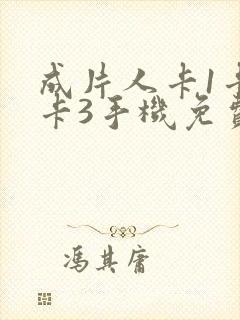 成片人卡1卡
卡3手機免費
馮其庸